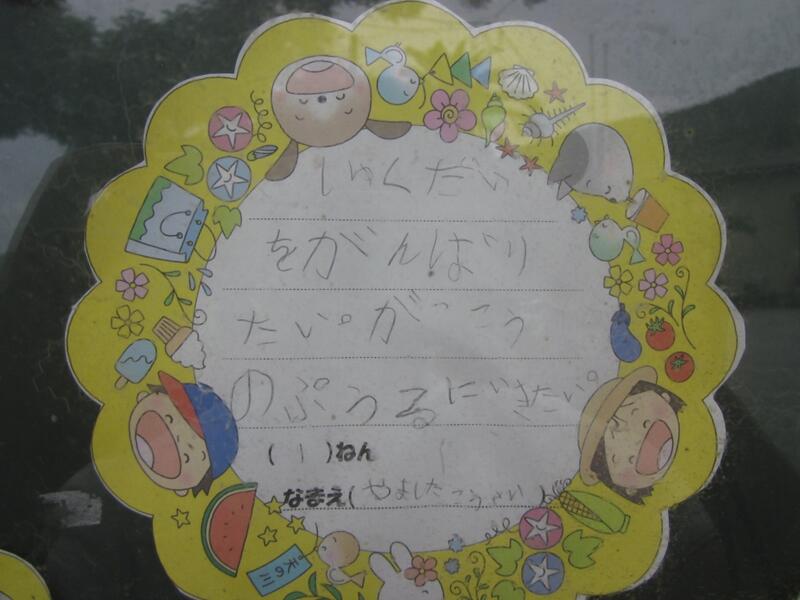 しゅくだい
をがんばり
たい。がっこう
のぷうるにいきたい。
(1)ねん
なまえ(やました こうせい)
天の川